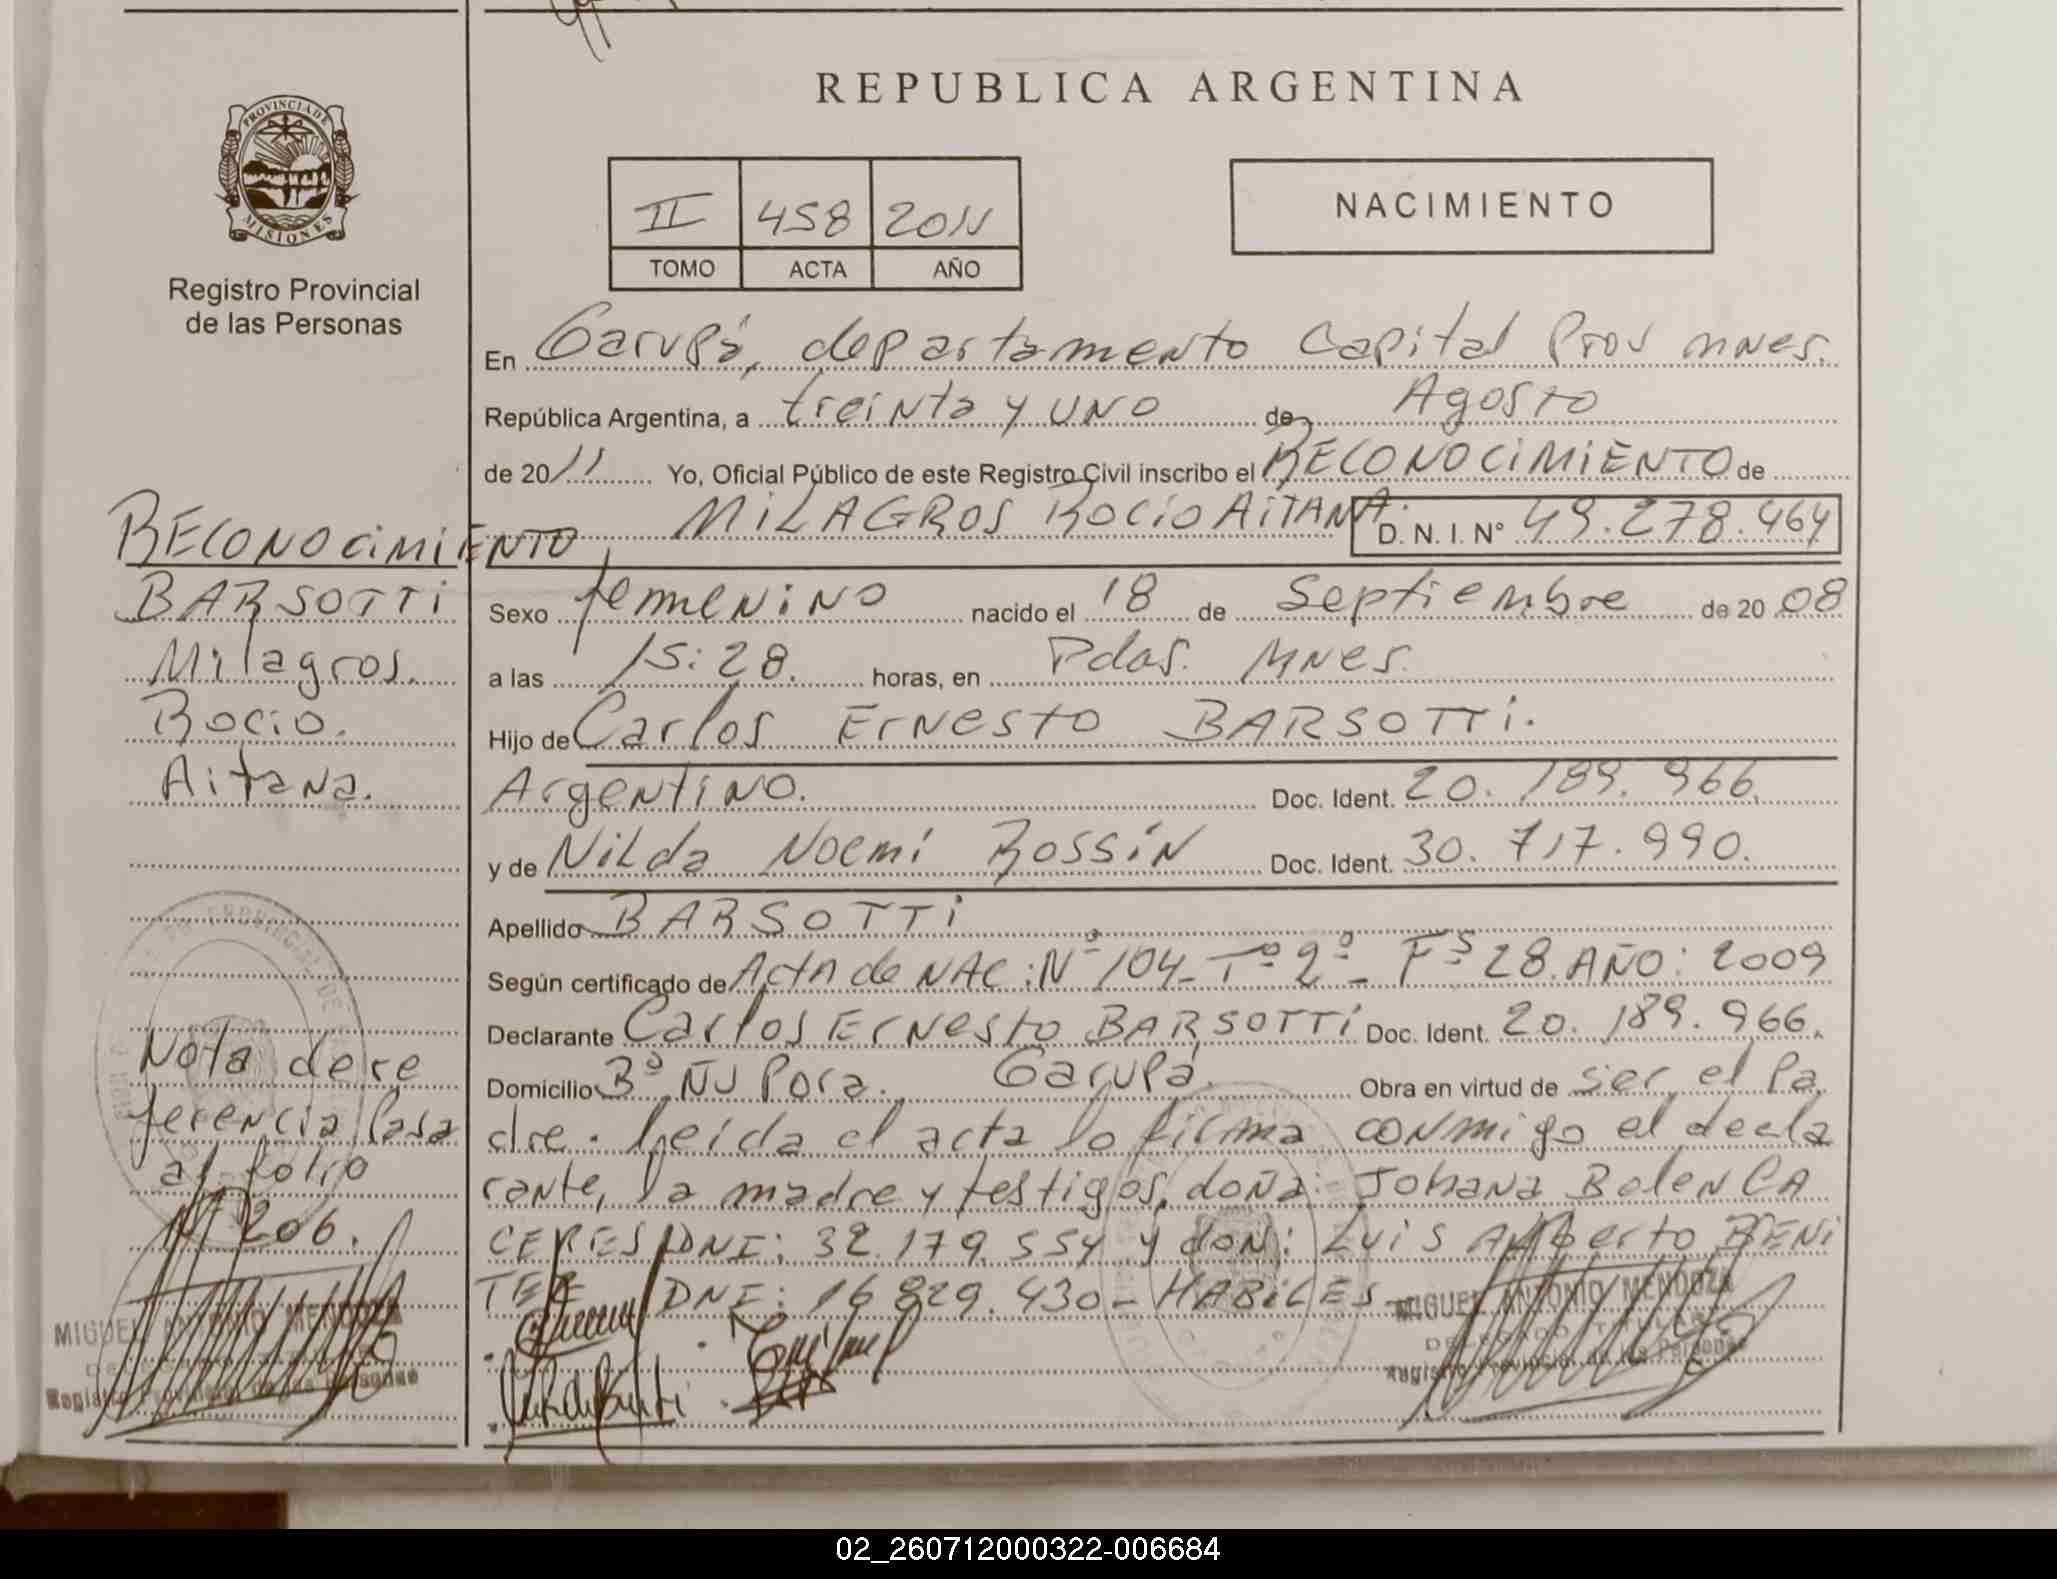 REPUBLICA ARGENTINA
PROVINCIA DE
MISIONES
Registro Provincial
de las Personas
II 458 2011
TOMO ACTA AÑO
NACIMIENTO
En Garupá, departamento Capital Prov mnes.
República Argentina, a treinta y uno de Agosto
de 2011 Yo, Oficial Público de este Registro Civil inscribo el RECONOCIMIENTO de
MILAGROS ROCIO AITANA. D. N. I. N° 49.278.464
Sexo femenino nacido el 18 de Septiembre de 20 08
a las 15:28. horas, en Pdas. Mnes.
Hijo de Carlos Ernesto BARSOTTI.
Argentino. Doc. Ident. 20.189.966.
y de Nilda Noemí Rossin Doc. Ident. 30.717.990.
Apellido BARSOTTI
Según certificado de Acta de NAC: Nº 104 - Tº 2º - Fs 28. AÑO: 2009
Declarante Carlos Ernesto BARSOTTI Doc. Ident. 20.189.966.
Domicilio Bº ÑU Pora. Garupá. Obra en virtud de ser el Pa
dre. Leida el acta lo firma conmigo el decla
rante, la madre y testigos, doña: Johana Belen CA
CERES DNI: 32.179.554 y don: Luis Alberto BENI
TEZ DNI: 16.829.430 - HABILES -
MIGUEL ANTONIO MENDOZA
DELEGADO TITULAR
Registro Provincial de las Personas
RECONOCIMIENTO
BARSOTTI
Milagros.
Rocio.
Aitana.
Nota de re
ferencia Pasa
al folio
Nº 206.
MIGUEL ANTONIO MENDOZA
Registro Provincial de las Personas
02_260712000322-006684